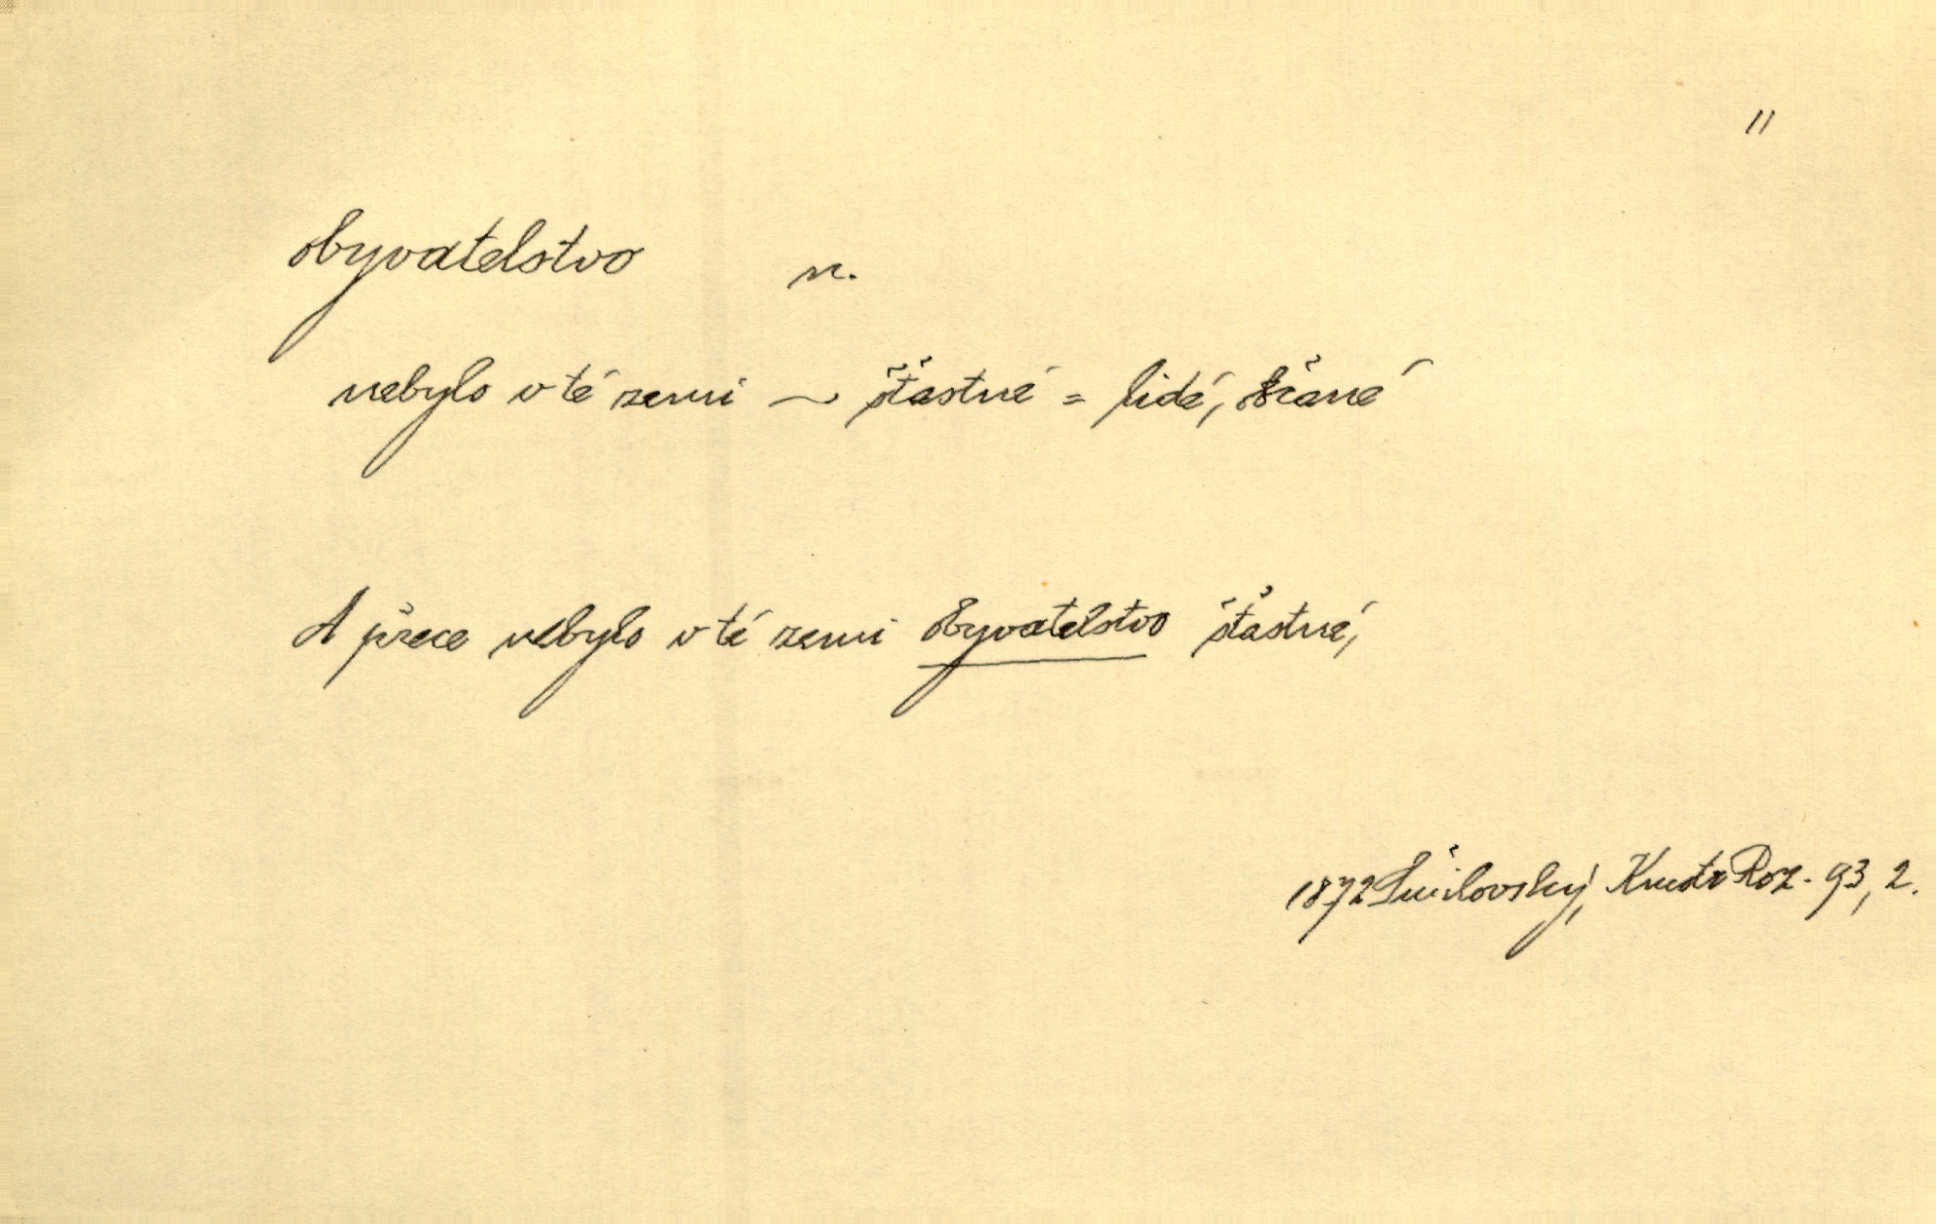 11
obyvatelstvo n.
nebylo v té zemi ~ šťastné = lidé, občané
A přece nebylo v té zemi obyvatelstvo šťastné,
1872 Šmilovský, Roz. 93, 2.